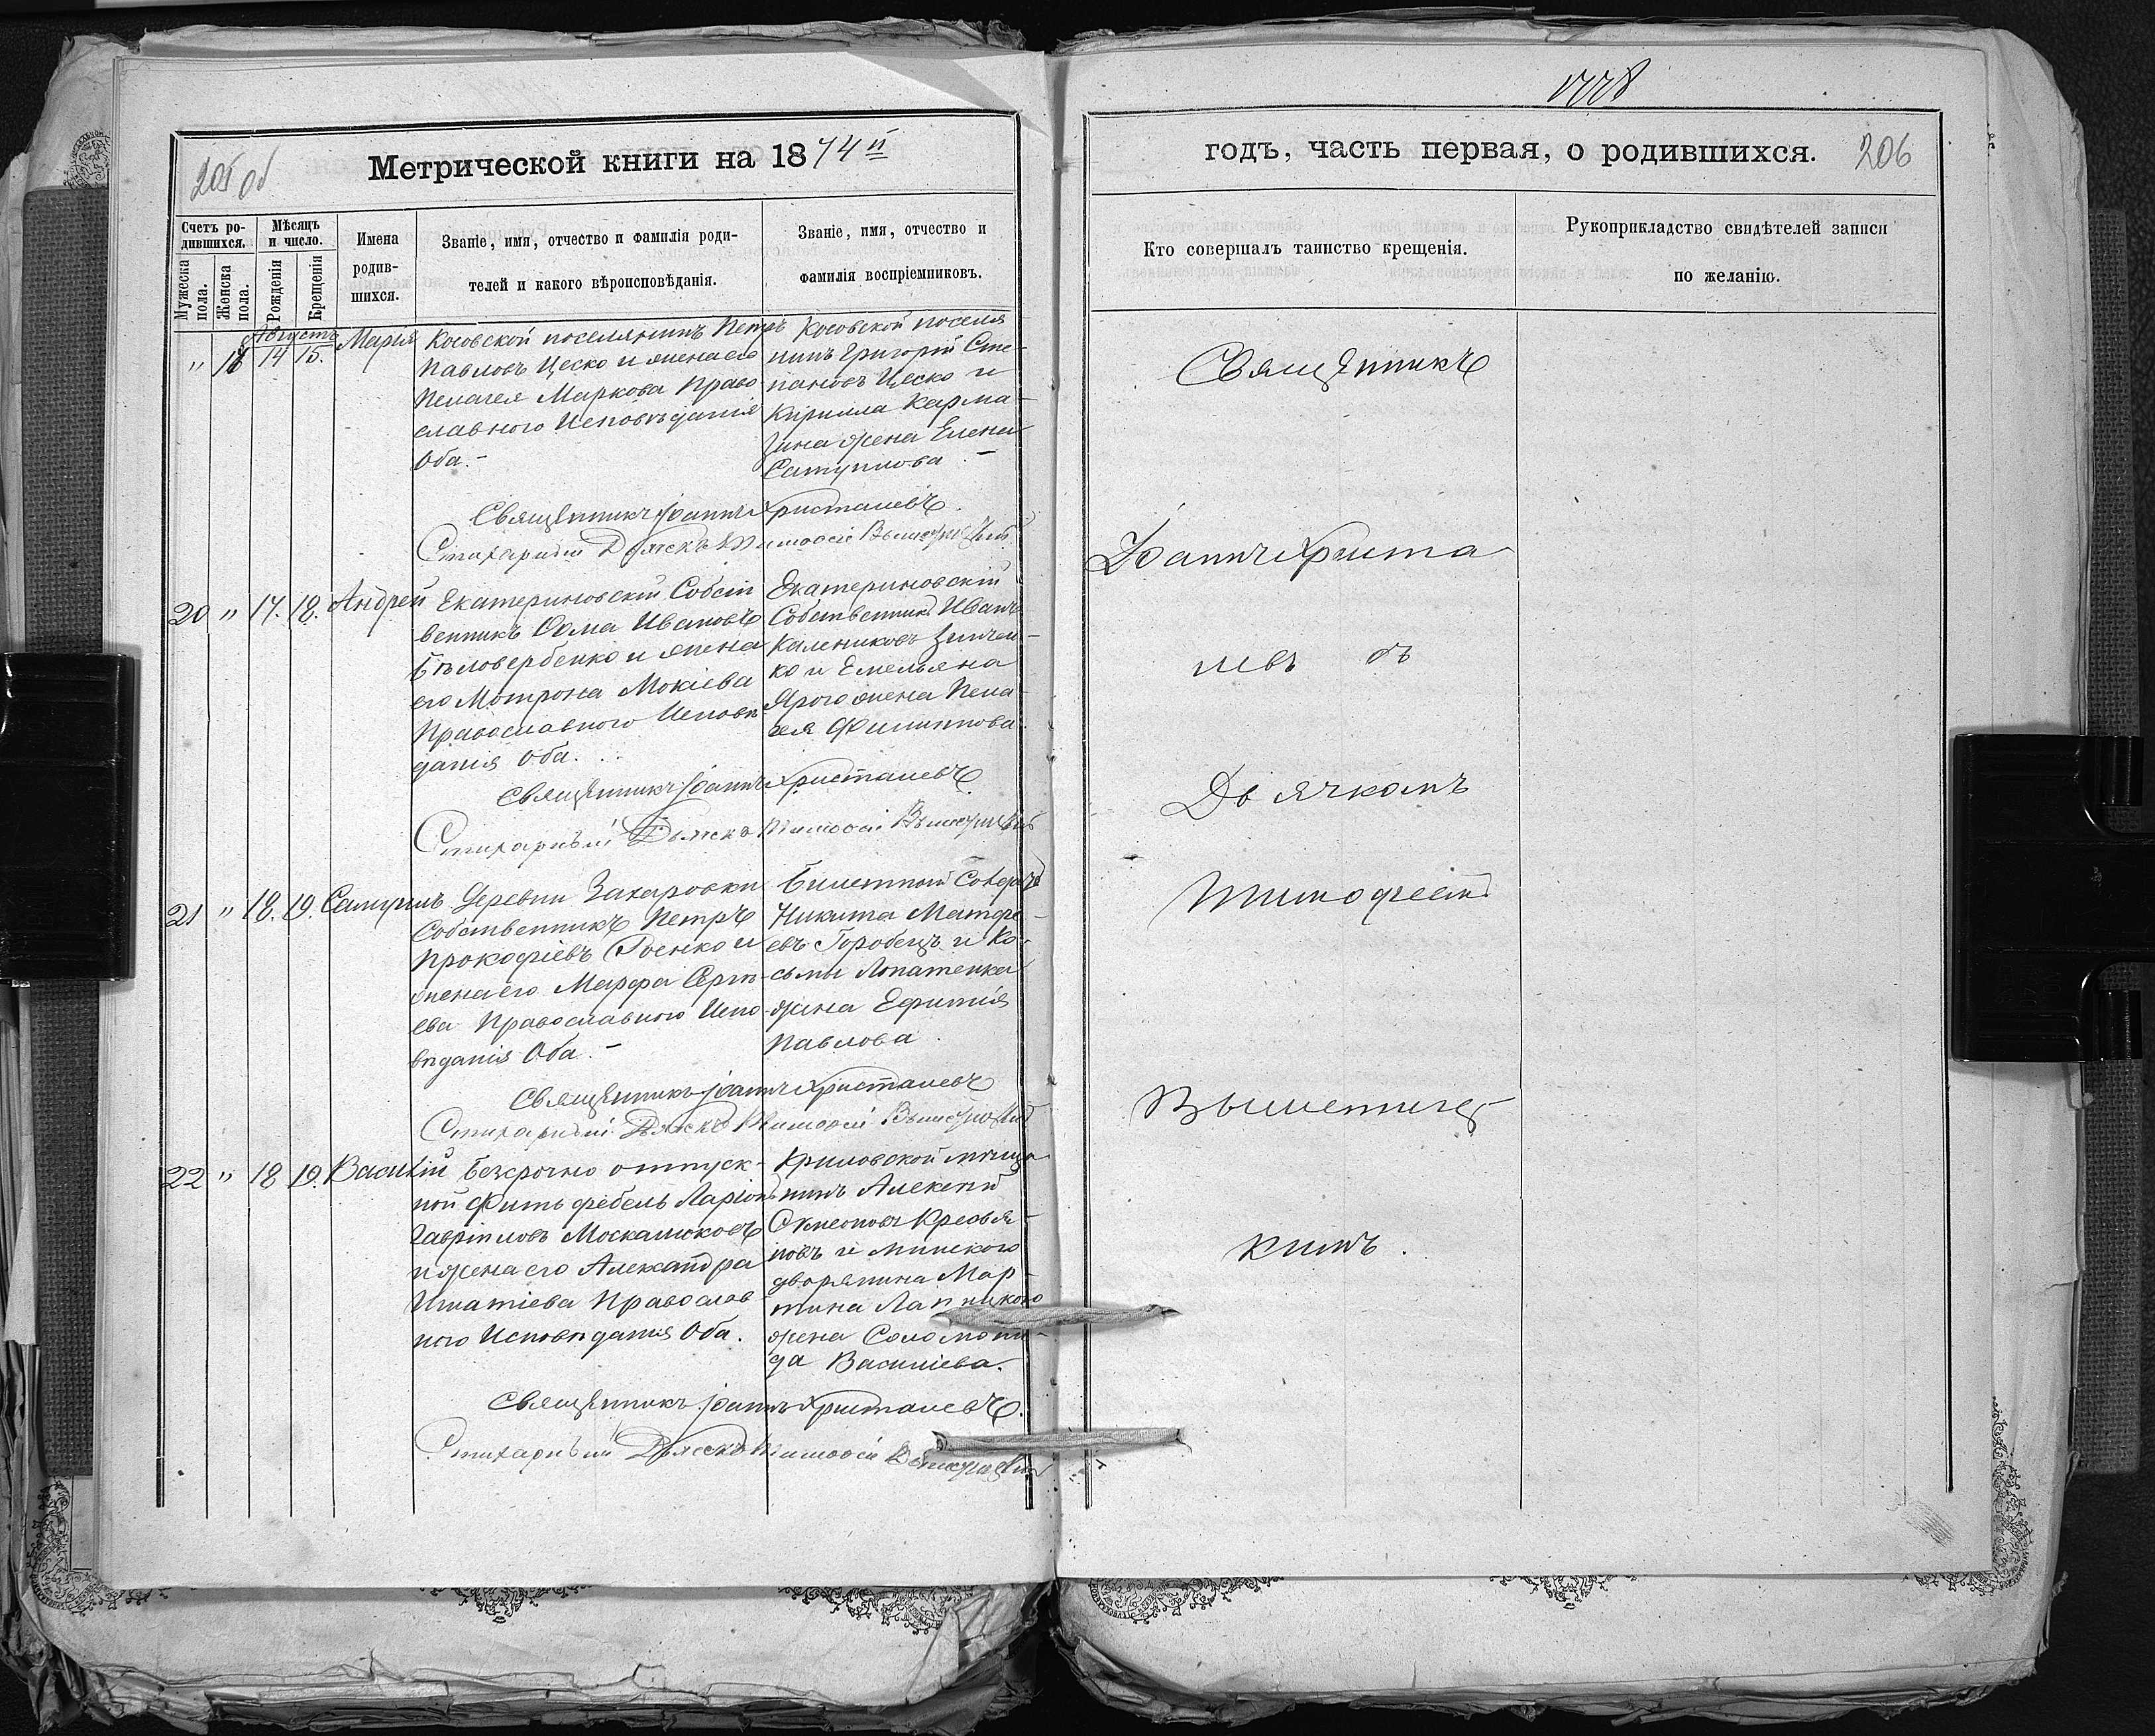 205 об
Метрической книги на 1874й
Счетъ ро-
дившихся.
Мѣсяцъ
и число.
Мужеска
пола.
Женска
пола.
Рожденія
Крещенія
Имена
родив-
шихся.
Званіе, имя, отчество и фамилія роди-
телей и какого вѣроисповѣданія.
Званіе, имя, отчество и
фамилія воспріемниковъ.
Августъ
" 18 14 15. Марія
Косовской поселянинъ Петръ
Павловъ Цеско и жена его
Пелагея Маркова Право
славнаго Исповѣданія
Оба.-
Косовской поселя
нинъ Григорій Сте-
пановъ Цеско и
Кирилла Карма-
зина жена Елена
Сатурнова -
Священникъ Іоаннъ Христалевъ.
Стихарный Дьячекъ Тимофей
20 " 17. 18. Андрей
Екатериновскій Собст
венникъ Ѳома Ивановъ
Бѣловербенко и жена
его Мотрона Мокіева
Православнаго Исповѣ-
данія Оба.
Екатериновскій
Собственникъ Иванъ
Калениковъ Зинчен-
ко и Емельяна
Ярого жена Пела-
гея Филиппова.
Священникъ Іоаннъ Христалевъ
Стихарный Дьячекъ Тимофей
21 " 18. 19. Самуилъ
Деревни Захаровки
Собственникъ Петръ
Прокофіевъ Гоенко и
жена его Марфа Сергѣ-
ева Православнаго Испо
вѣданія Оба.-
Билетный Солдатъ
Никита Матфе-
евъ Горобецъ и Ко-
сьмы Лопатенка
жена Ефимія
Павлова.
Священникъ Іоаннъ Христалевъ
Стихарный Дьячекъ Тимофей
22 " 18 19. Василій
Безсрочно отпуск-
ной Фитьфебель Ларіонъ
Гавріиловъ Москалюковъ
и жена его Александра
Игнатіева Православ-
наго Исповѣданія Оба.
Криловской мѣща
нинъ Алексѣй
Кресья-
новъ и Минского
дворянина Мар-
тина Лапицкого
жена Соломони-
да Василіева.
Священникъ Іоаннъ Христалевъ.
Стихарный Дьячекъ Тимофей
1778
годъ, часть первая, о родившихся. 206
Кто совершалъ таинство крещенія.
Рукоприкладство свидѣтелей записи
по желанію.
Священникъ
Іоаннъ Христа
левъ съ
Дьячкомъ
Тимофеемъ
кимъ.